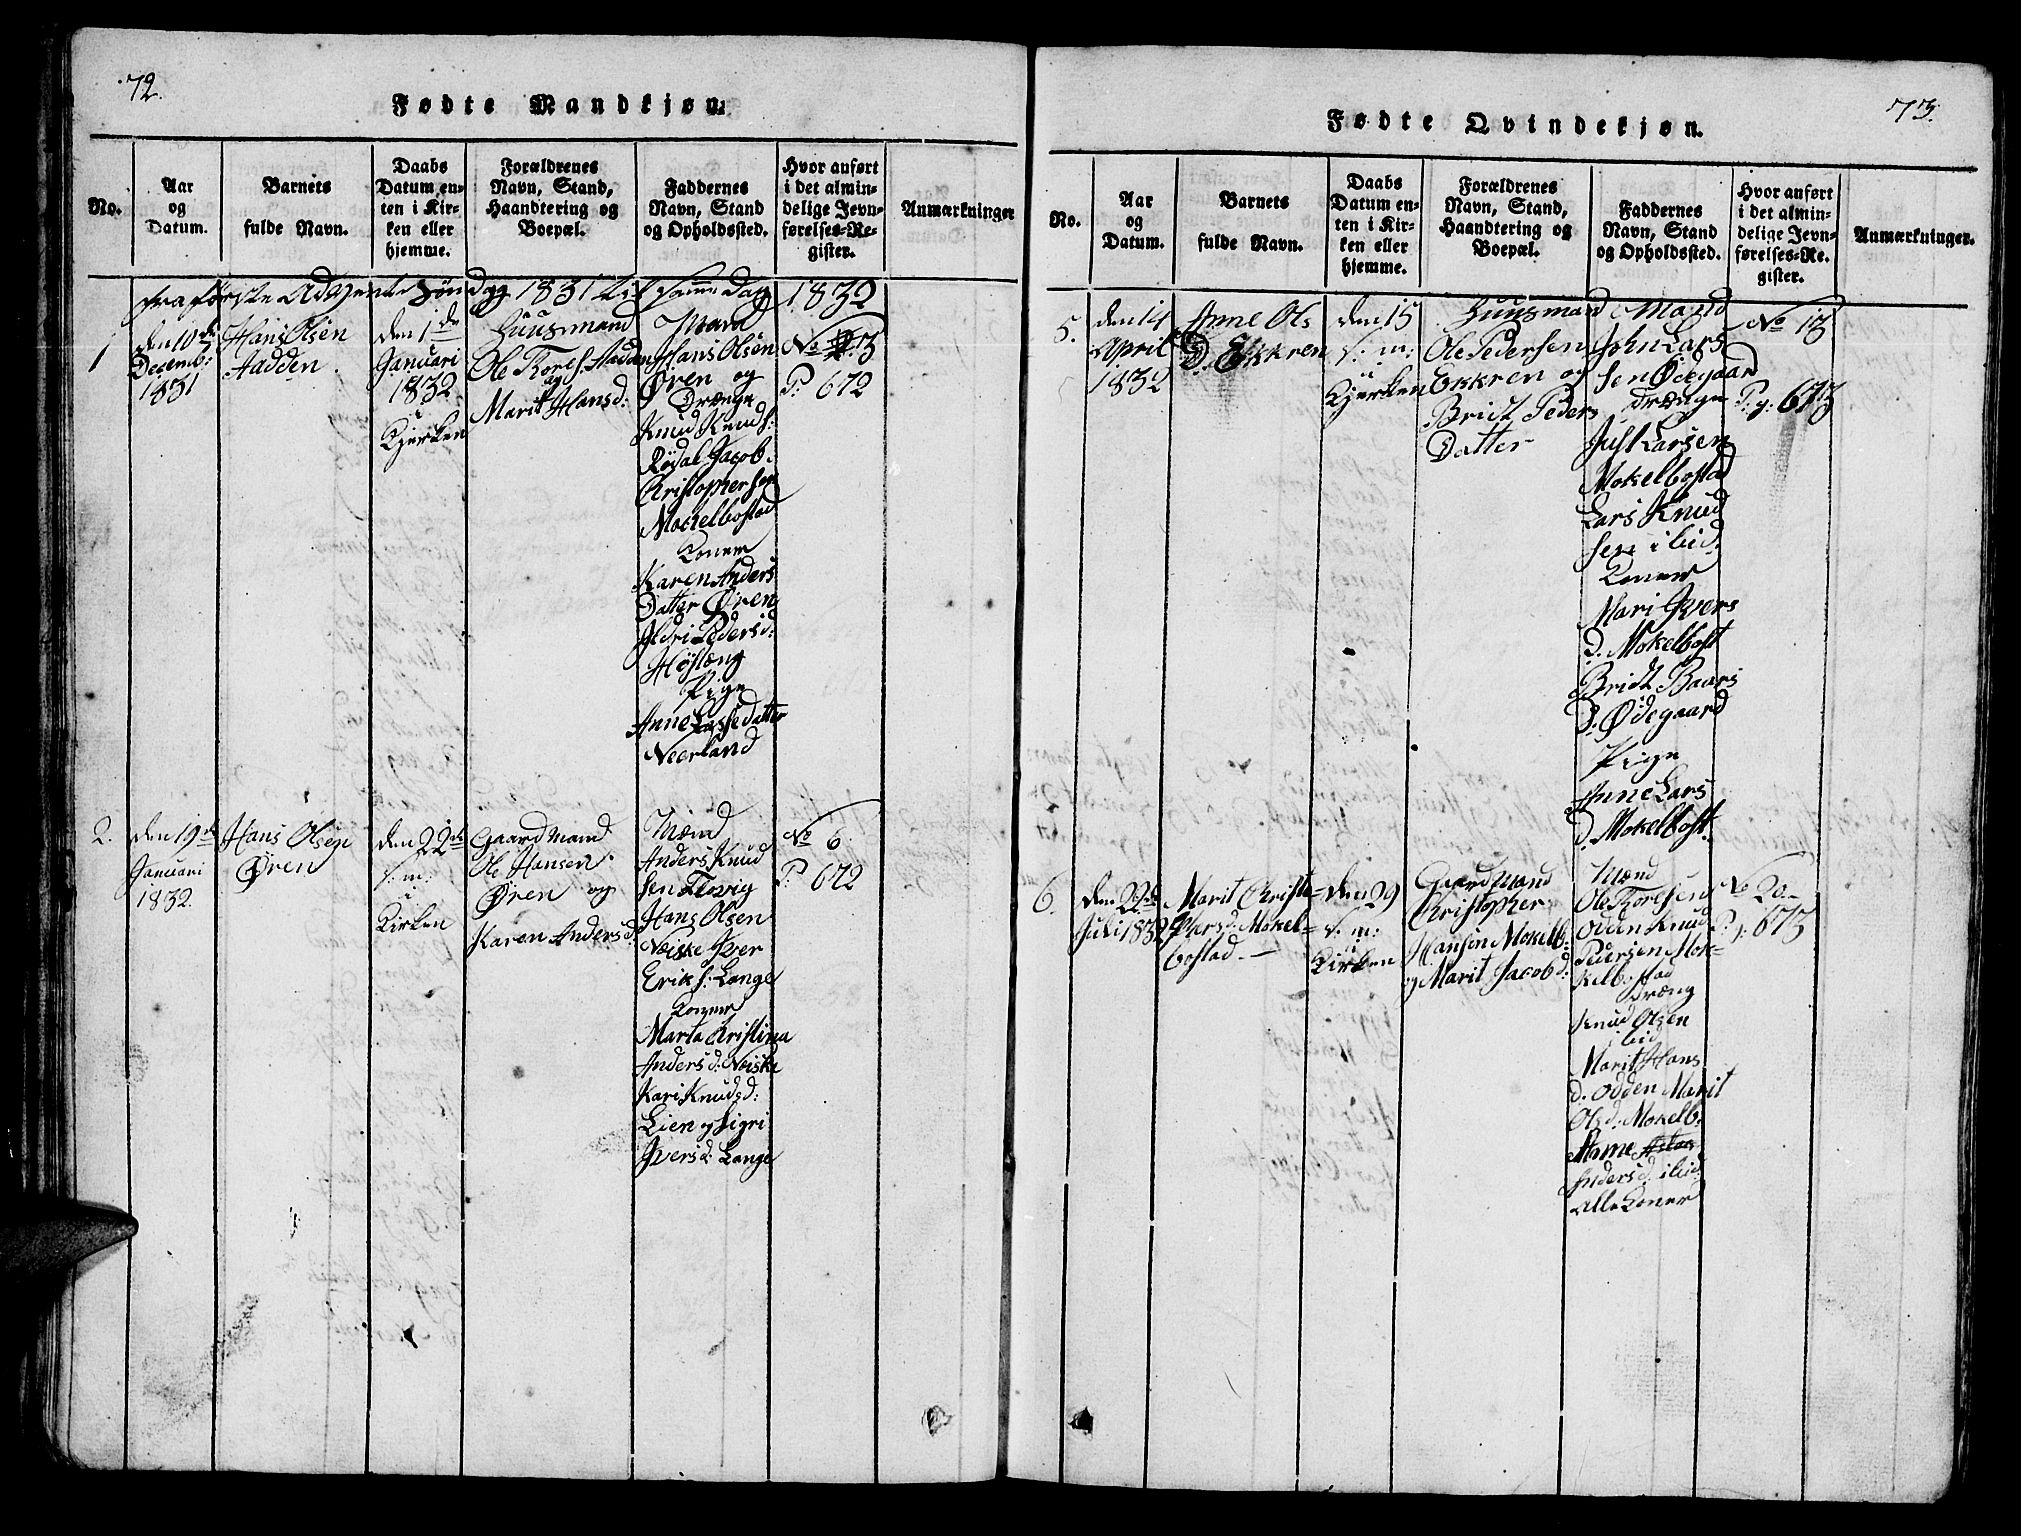 72.
Fødte Mandkjøn.
No.
Aar
og
Datum.
Barnets
fulde Navn.
Daabs
Datum en-
ten i Kir-
ken eller
hjemme.
Forældrenes
Navn, Stand,
Haandtering og
Boepæl.
Faddernes
Navn, Stand
og Opholdssted.
Hvor anført
i det almin-
delige Jevn-
førelses-Re-
gister.
Anmærkninger
fra første Adventz Søndag 1831 til samme Dag 1832
1
den 10de
Decemb:
1831
Hans Olsen
Aadden
den 1de
Januari
1832
i
Kjerken
Huusmand
Ole Tores. Aadden
og
Marit Hansd:
Mænd
Hans Olsen
Øren og
Drænge
Knud Knuds:
Røsdal Jacob
Christophersen
Mokelbostad
Koner
Karen Anders
Datter Øren
Aldri Pedersd:
Høstæng
Pige
Anne Lassedatter
Neerland
No 3
P: 672
2.
den 19de
Januari
1832.
Hans Olsen
Øren
den 22de
s: m:
i
Kirken
Gaardmand
Ole Hansen
Øren og
Karen Andersd:
Mænd
Anders Knud
sen Flovig
Hans Olsen
Neiske Iver
Eriks: Lange
Koner
Marta Kristina
Andersd: Neiske
Kari Knudsd:
Lien og Sigri
Iversd: Lange
No 6
P: 672
73.
Fødte Qvindekjøn.
No.
Aar
og
Datum.
Barnets
fulde Navn.
Daabs
Datum en-
ten i Kir-
ken eller
hjemme.
Forældrenes
Navn, Stand,
Haandtering og
Boepæl.
Faddernes
Navn, Stand
og Opholdssted.
Hvor anført
i det almin-
delige Jevn-
førelses-Re-
gister.
Anmærkninger.
5.
den 14
April
1832
Anne Ols
D. Ekren
den 15
s: m:
Kjerken
Huusmand
Ole Pedersen
Ekkren og
Bridt Peders
Datter
Mand
John Lars
sen Ødegaard
Drænge
Just Larsen
Mokelbostad
Lars Knud
sen ibid:
Koner
Mari Ivers
d. Mokelbost
Bridt Baars
d. Ødegaard
Pige
Anne Lars
d. Mokelbost.
No 13
P: g: 673
6.
den 22de
Juli 1832
Marit Christo=
phersd: Mokel=
bostad. —
den 29
s: m:
Kirken
Gaardmand
Kristopher
Hansen Mokelb:
og Marit Jacobd:
Mænd
Ole Toresen
Odden Knud
Pedersen Mok=
kelbostad
Dræng
Knud Olsen
ibid
Marit Hans
d. Odden Marit
Olsd: Mokelb:
Anne
Andersd. ibid
Alle Koner
No 20
P. g: 673